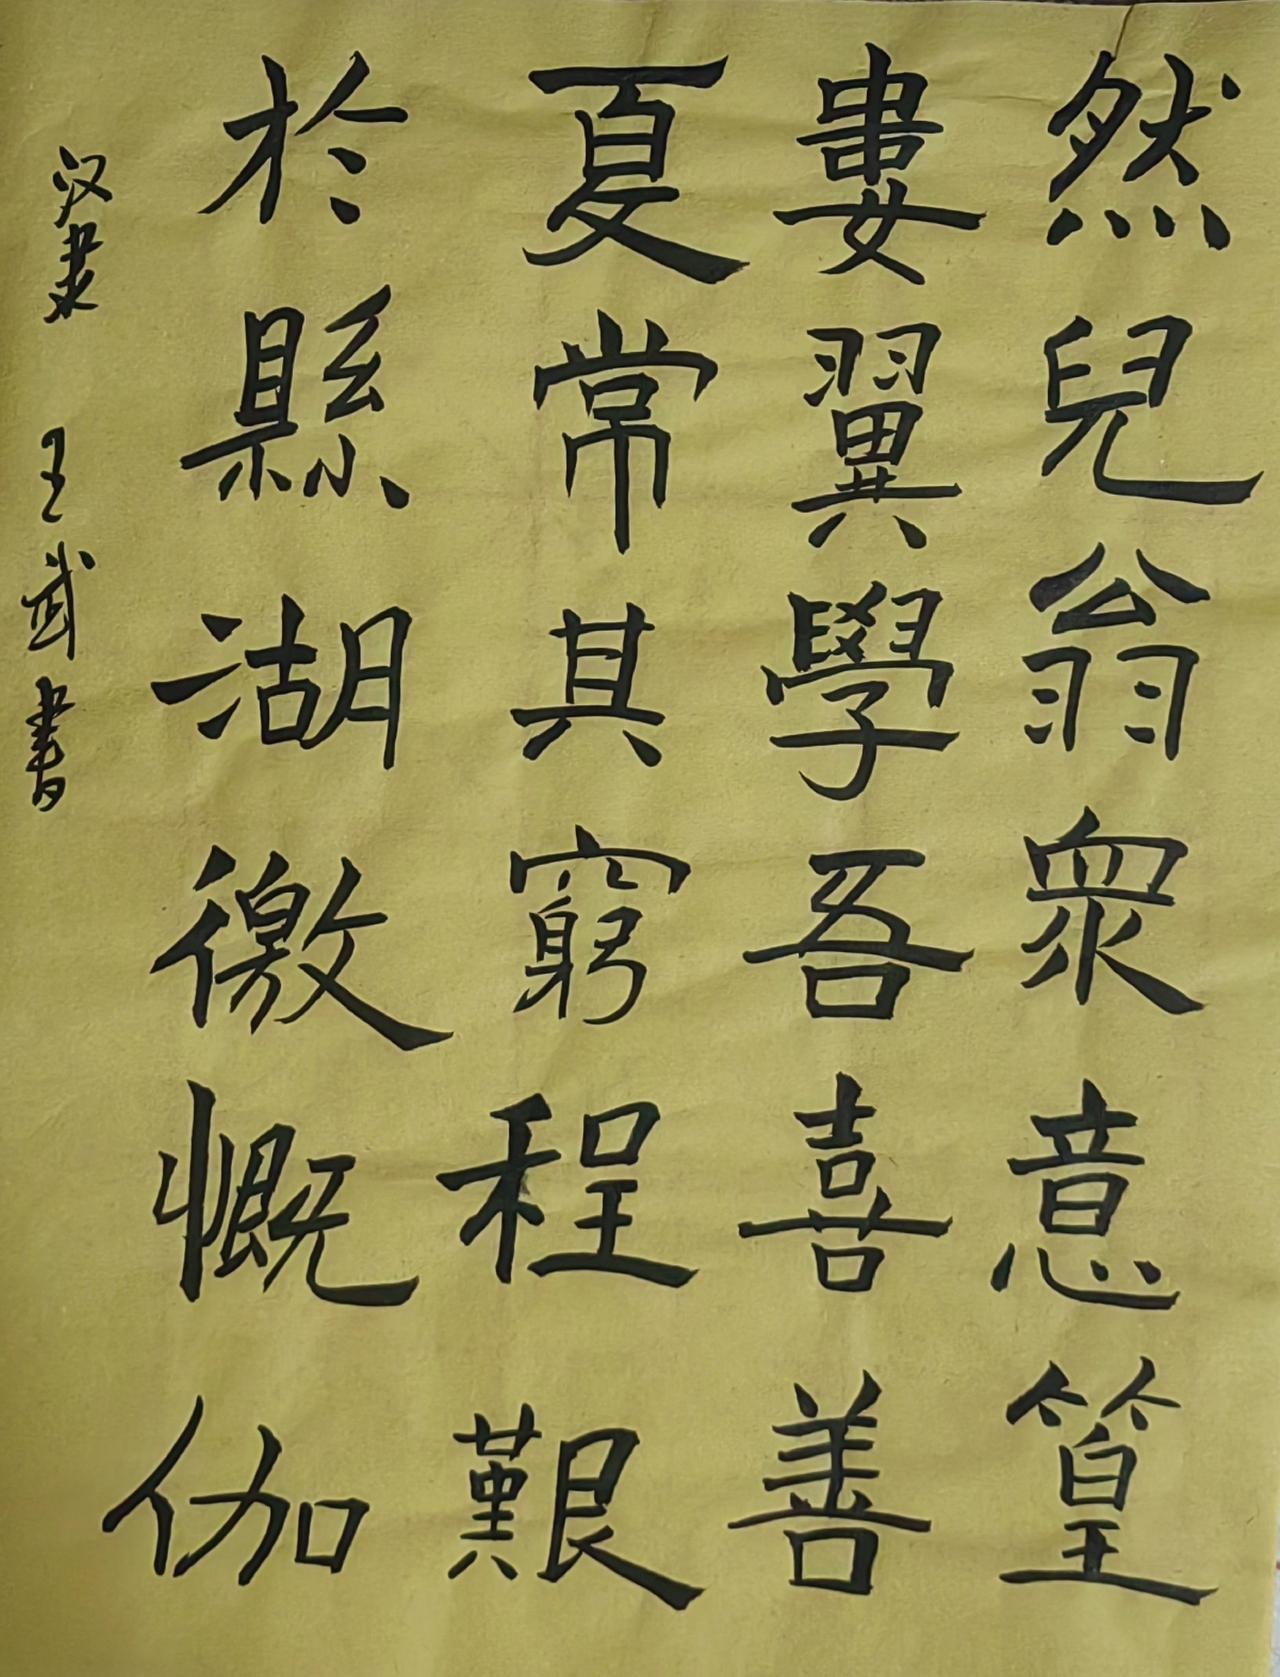 然兒翁衆意篁
婁翼學吾喜善
夏常其窮程艱
於縣湖徼慨伽
汉隶 王武書